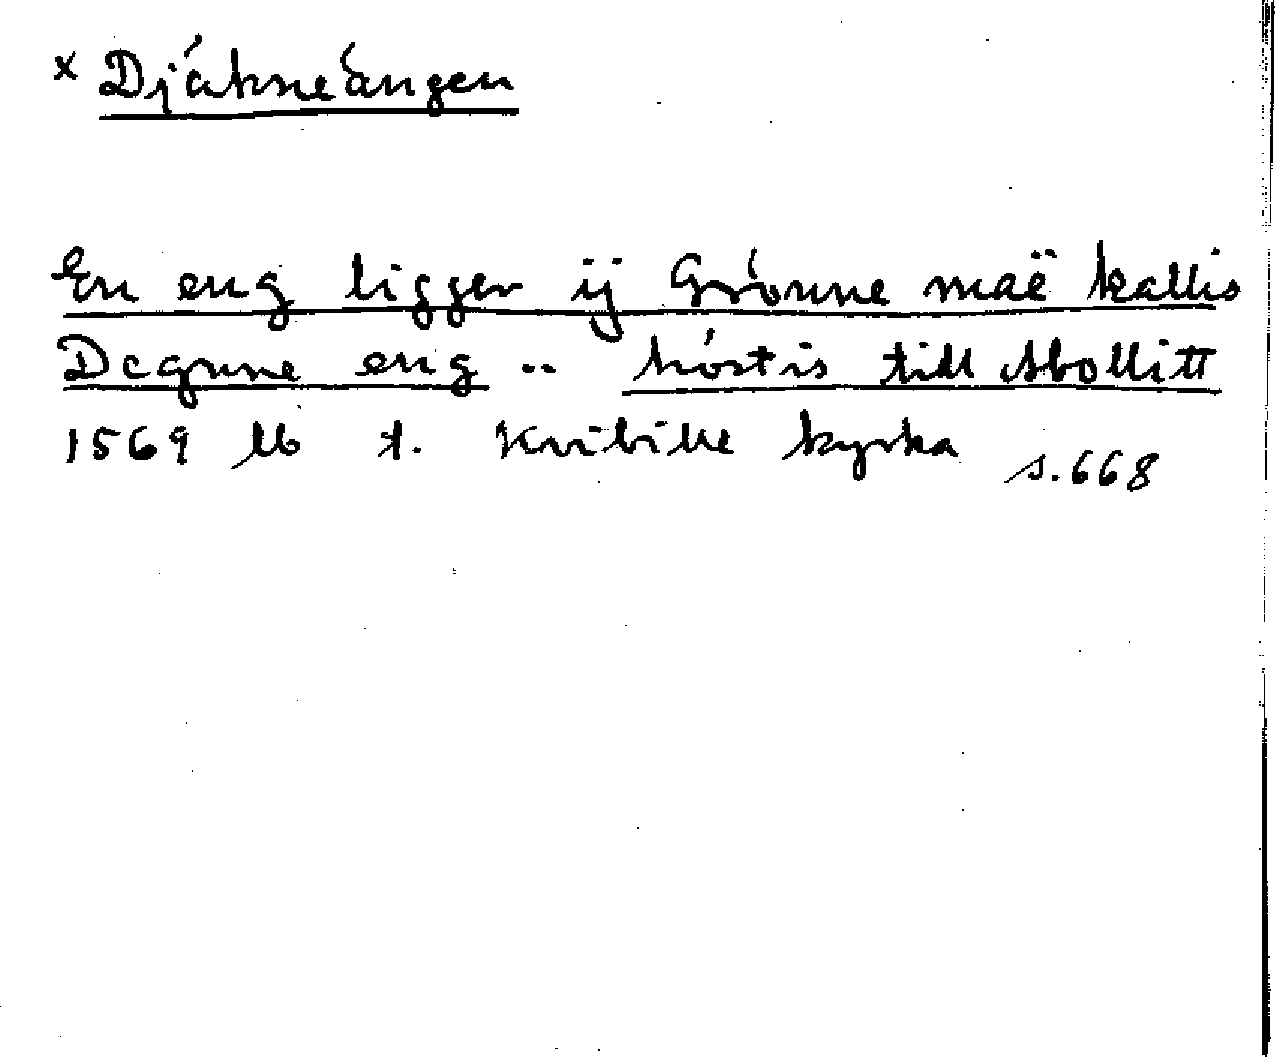 x Djäkneängen
En eng ligger ij Grönne maë kallis
Degnne eng .. höstis till Abollitt
1569 lb t. Kvibille kyrka s. 668